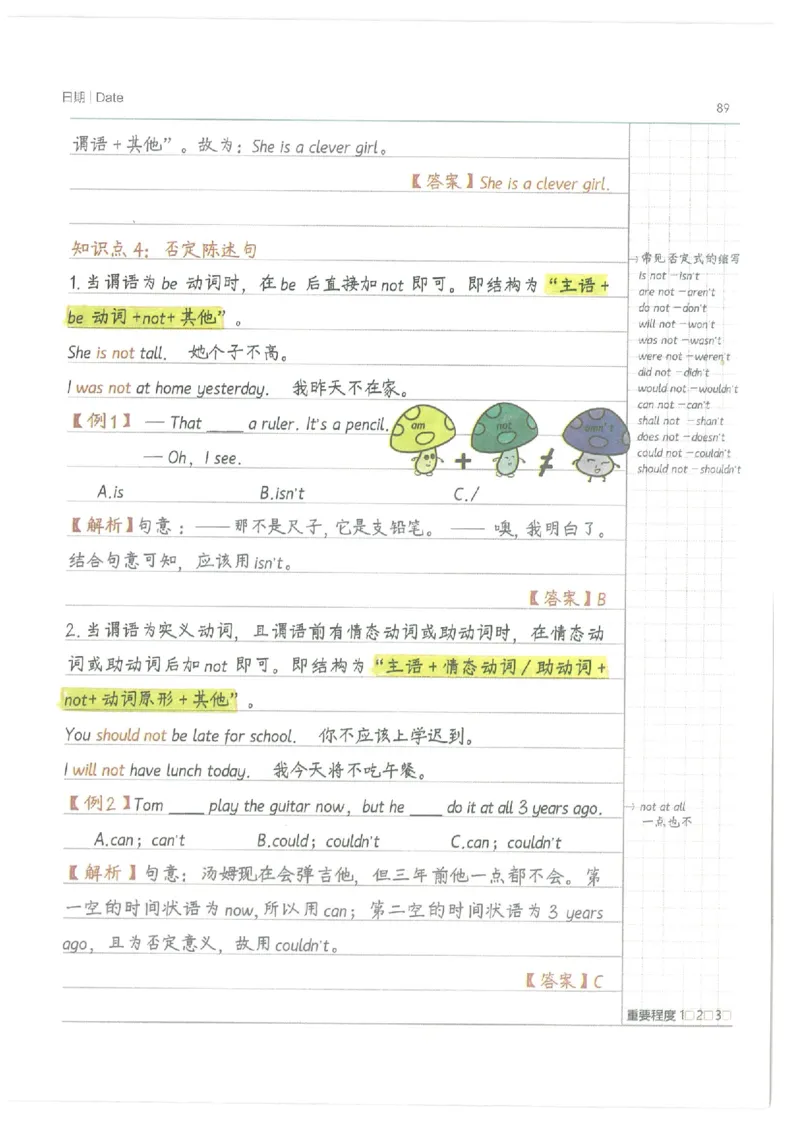 日期 | Date
89
谓语 + 其他”。故为：She is a clever girl。
【答案】She is a clever girl.
知识点 4：否定陈述句
1. 当谓语为 be 动词时，在 be 后直接加 not 即可。即结构为 “主语 +
be 动词 +not+ 其他”。
She is not tall. 她个子不高。
I was not at home yesterday. 我昨天不在家。
【例1】 — That ____ a ruler. It's a pencil.
— Oh, I see.
A.is B.isn't C./
am + not ≠ amn't
【解析】句意：—— 那不是尺子, 它是支铅笔。 —— 噢, 我明白了。
结合句意可知，应该用 isn't。
【答案】B
2. 当谓语为实义动词，且谓语前有情态动词或助动词时，在情态动
词或助动词后加 not 即可。即结构为 “主语 + 情态动词 / 助动词 +
not+ 动词原形 + 其他”。
You should not be late for school. 你不应该上学迟到。
I will not have lunch today. 我今天将不吃午餐。
【例2】Tom ____ play the guitar now, but he ____ do it at all 3 years ago.
A.can；can't B.could；couldn't C.can；couldn't
【解析】句意：汤姆现在会弹吉他，但三年前他一点都不会。第
一空的时间状语为 now, 所以用 can；第二空的时间状语为 3 years
ago，且为否定意义，故用 couldn't。
【答案】C
→常见否定式的缩写
is not —isn't
are not —aren't
do not —don't
will not —won't
was not —wasn't
were not —weren't
did not —didn't
would not —wouldn't
can not —can't
shall not —shan't
does not —doesn't
could not —couldn't
should not —shouldn't
→ not at all
一点也不
重要程度 1□2□3□